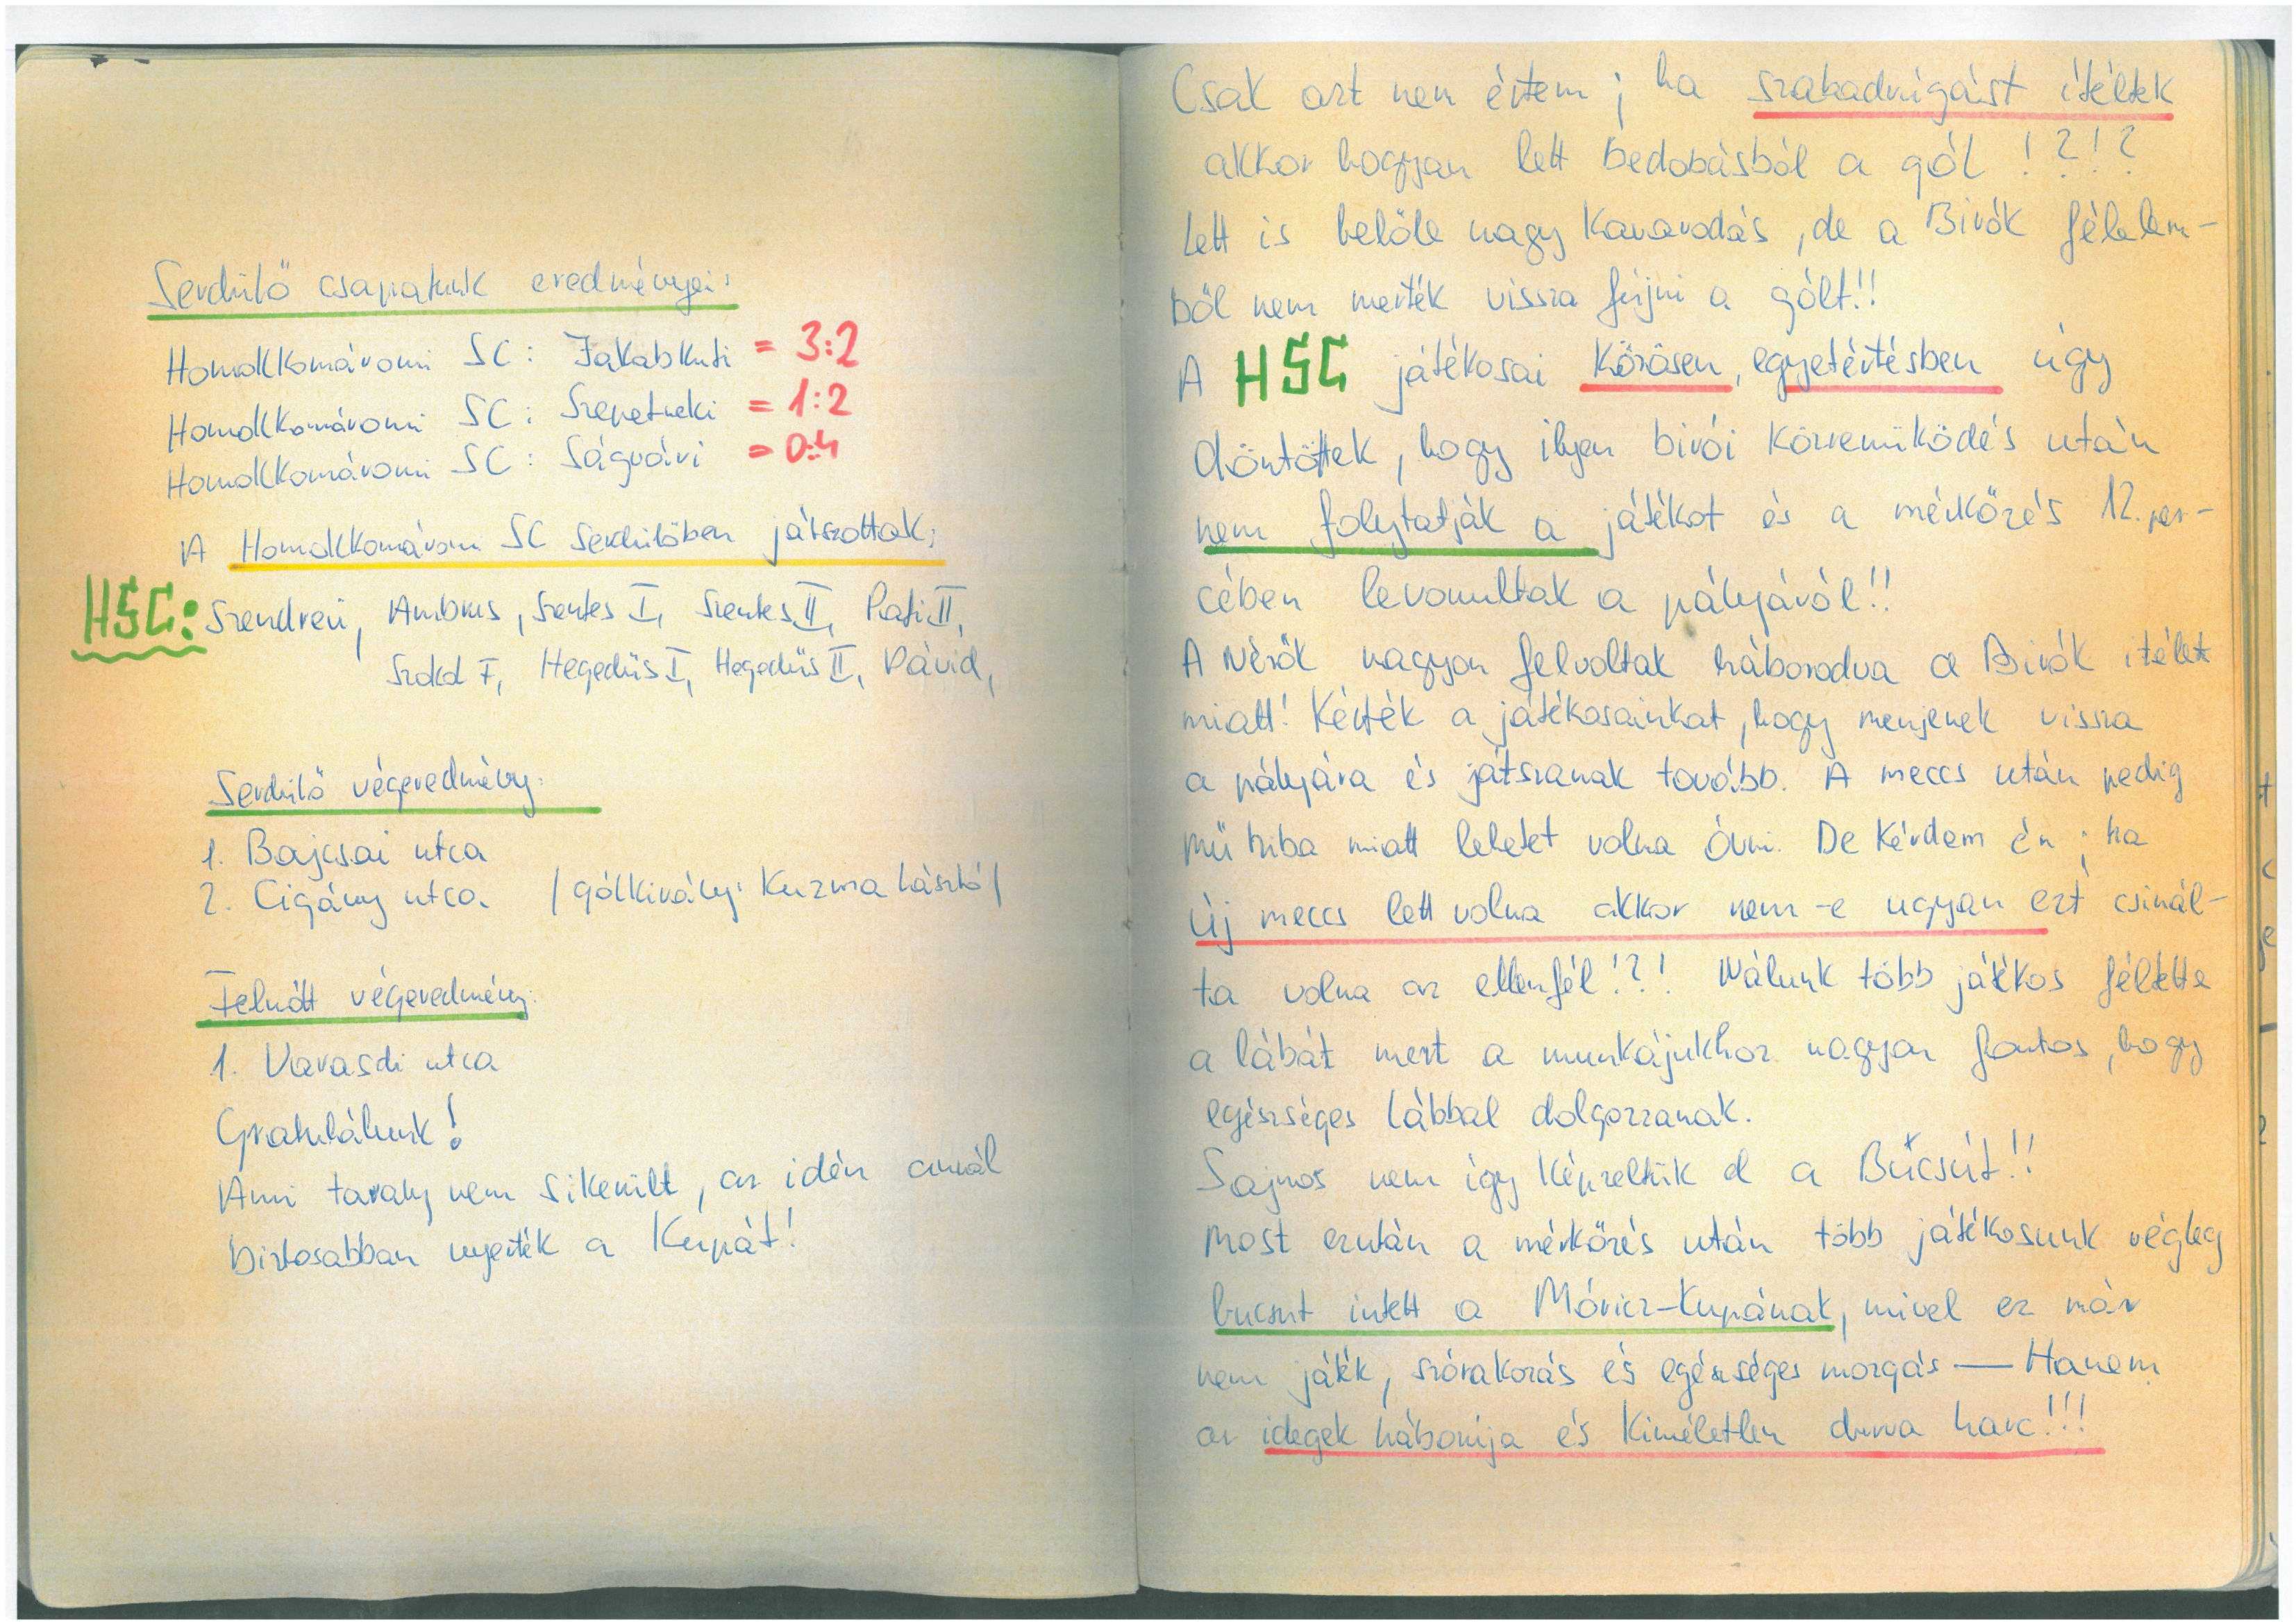 Serdülő csapatunk eredményei:
Homokkomáromi SC : Jakabkuti = 3:2
Homokkomáromi SC : Szepetneki = 1:2
Homokkomáromi SC : Ságvári = 0:4
A Homokkomárom SC Serdülőben játszottak;
HSC: Szendrei, Ambrus, Szentes I, Szentes II, Pati II,
Szokol I, Hegedüs I, Hegedüs II, Dávid,
Serdülő végeredmény:
1. Bajcsai utca
2. Cigány utca / gólkirály: Kuzma László /
Felnőtt végeredmény:
1. Varasdi utca
Gratulálunk!
Ami tavaly nem sikerült, az idén annál
biztosabban nyerték a Kupát!
Csak azt nem értem ; ha szabadrúgást ítéltek
akkor hogyan lett bedobásból a gól !?!?
Lett is belőle nagy kavarodás, de a Birók félelem-
ből nem merték vissza fújni a gólt!!
A HSC játékosai közösen, egyetértésben úgy
döntöttek, hogy ilyen birói közremüködés után
nem folytatják a játékot és a mérkőzés 12. per-
cében levonultak a pályáról!!
A Nézők nagyon felvoltak háborodva a Birók itélet
miatt! Kérték a játékosainkat, hogy menjenek vissza
a pályára és játszanak tovább. A meccs után pedig
mü hiba miatt lehetet volna óvni. De kérdem én ; ha
új meccs lett volna akkor nem -e ugyan ezt csinál-
ta volna az ellenfél!?! Nálunk több játékos féltette
a lábát mert a munkájukhoz nagyon fontos, hogy
egészséges lábbal dolgozzanak.
Sajnos nem így képzeltük el a Búcsút!!
Most ezután a mérkőzés után több játékosunk végleg
bucsut intett a Móricz-Kupának, mivel ez már
nem játék, szórakozás és egészséges mozgás — Hanem
az idegek háborúja és kiméletlen durva harc!!!